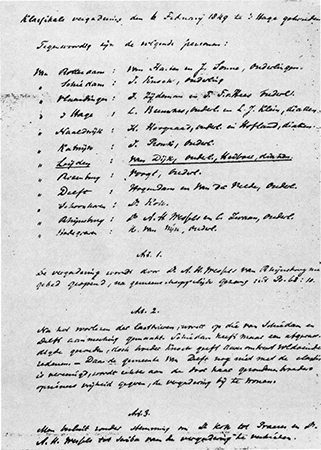 Klassikale vergadering, den 6 Februarij 1849 te 's Hage gehouden
Tegenwoordig zijn de volgende personen:
Van Rotterdam: van Haren en J. Louwe, Ouderlingen.
" Schiedam: J. Knoek, ouderling
" Vlaardingen: J. Tijdeman en
" 's Hage: L. ouderl. en L. J. Klein, diaken.
" Naaldwijk: H. Hoogvaat, ouderl. en Hofland, diaken.
" Katwijk: J. Pronk, ouderl.
" Leijden: van Dijk, ouderl., diaken
" Rozenburg: Voogt, ouderl.
" Delft: Hogendam en Van der Velden, Ouderl.
" Schoonhoven: Ds. Kok.
" Rhijnsburg: Ds. A. H. Wessels en ouderl.
" Bodegraven: K. van Wijk, ouderl.
Art. 1.
De vergadering wordt door Ds. A. H. Wessels van Rhijnsburg met
gebed geopend, na gemeenschappelijk gezang uit Ps.
Art. 2.
Na het voorlezen der lastbrieven, wordt op die van Schiedam en
Delft aanmerking gemaakt. Schiedam heeft maar een afgevaar-
digde gezonden, doch broeder Knoek geeft daaromtrent voldoende
redenen. Daar de gemeente van Delft nog niet met de classis
is vereenigd, wordt echter aan de door haar gezonden broeders
vrijheid gegeven, de vergadering bij te wonen.
Art. 3.
Men besluit zonder stemming om Ds. Kok tot Praeses en Ds.
A. H. Wessels tot Scriba van de vergadering te verkiezen.